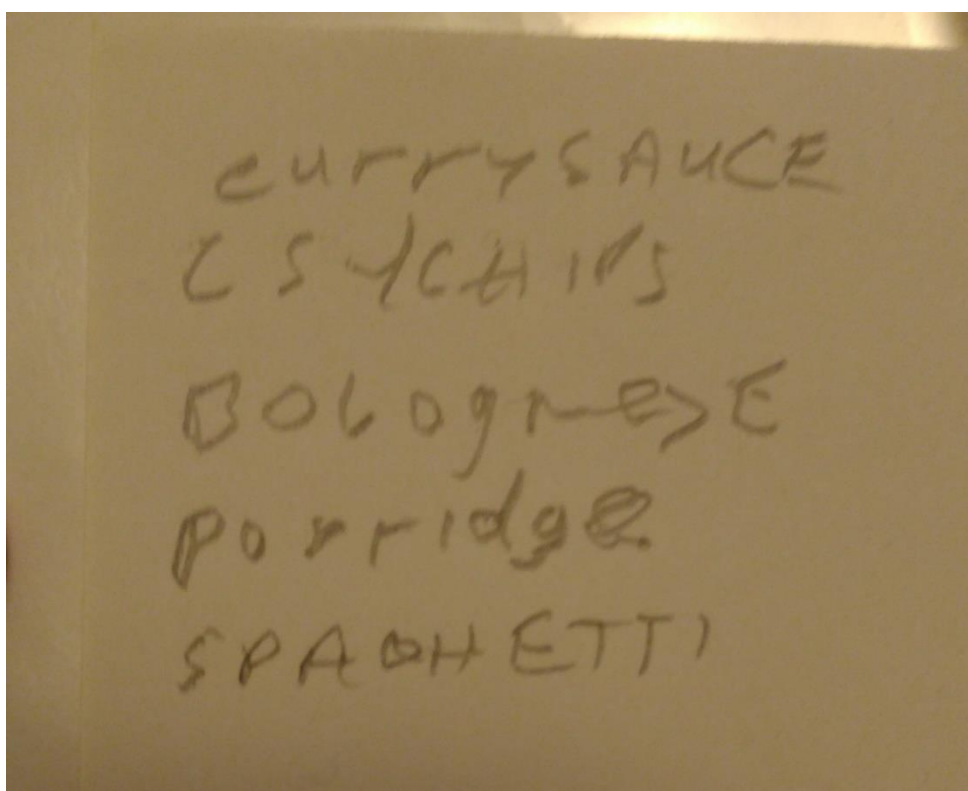 currySAUCE
CS/CHIPS
BOLognesE
porridge
SPAGHETTI